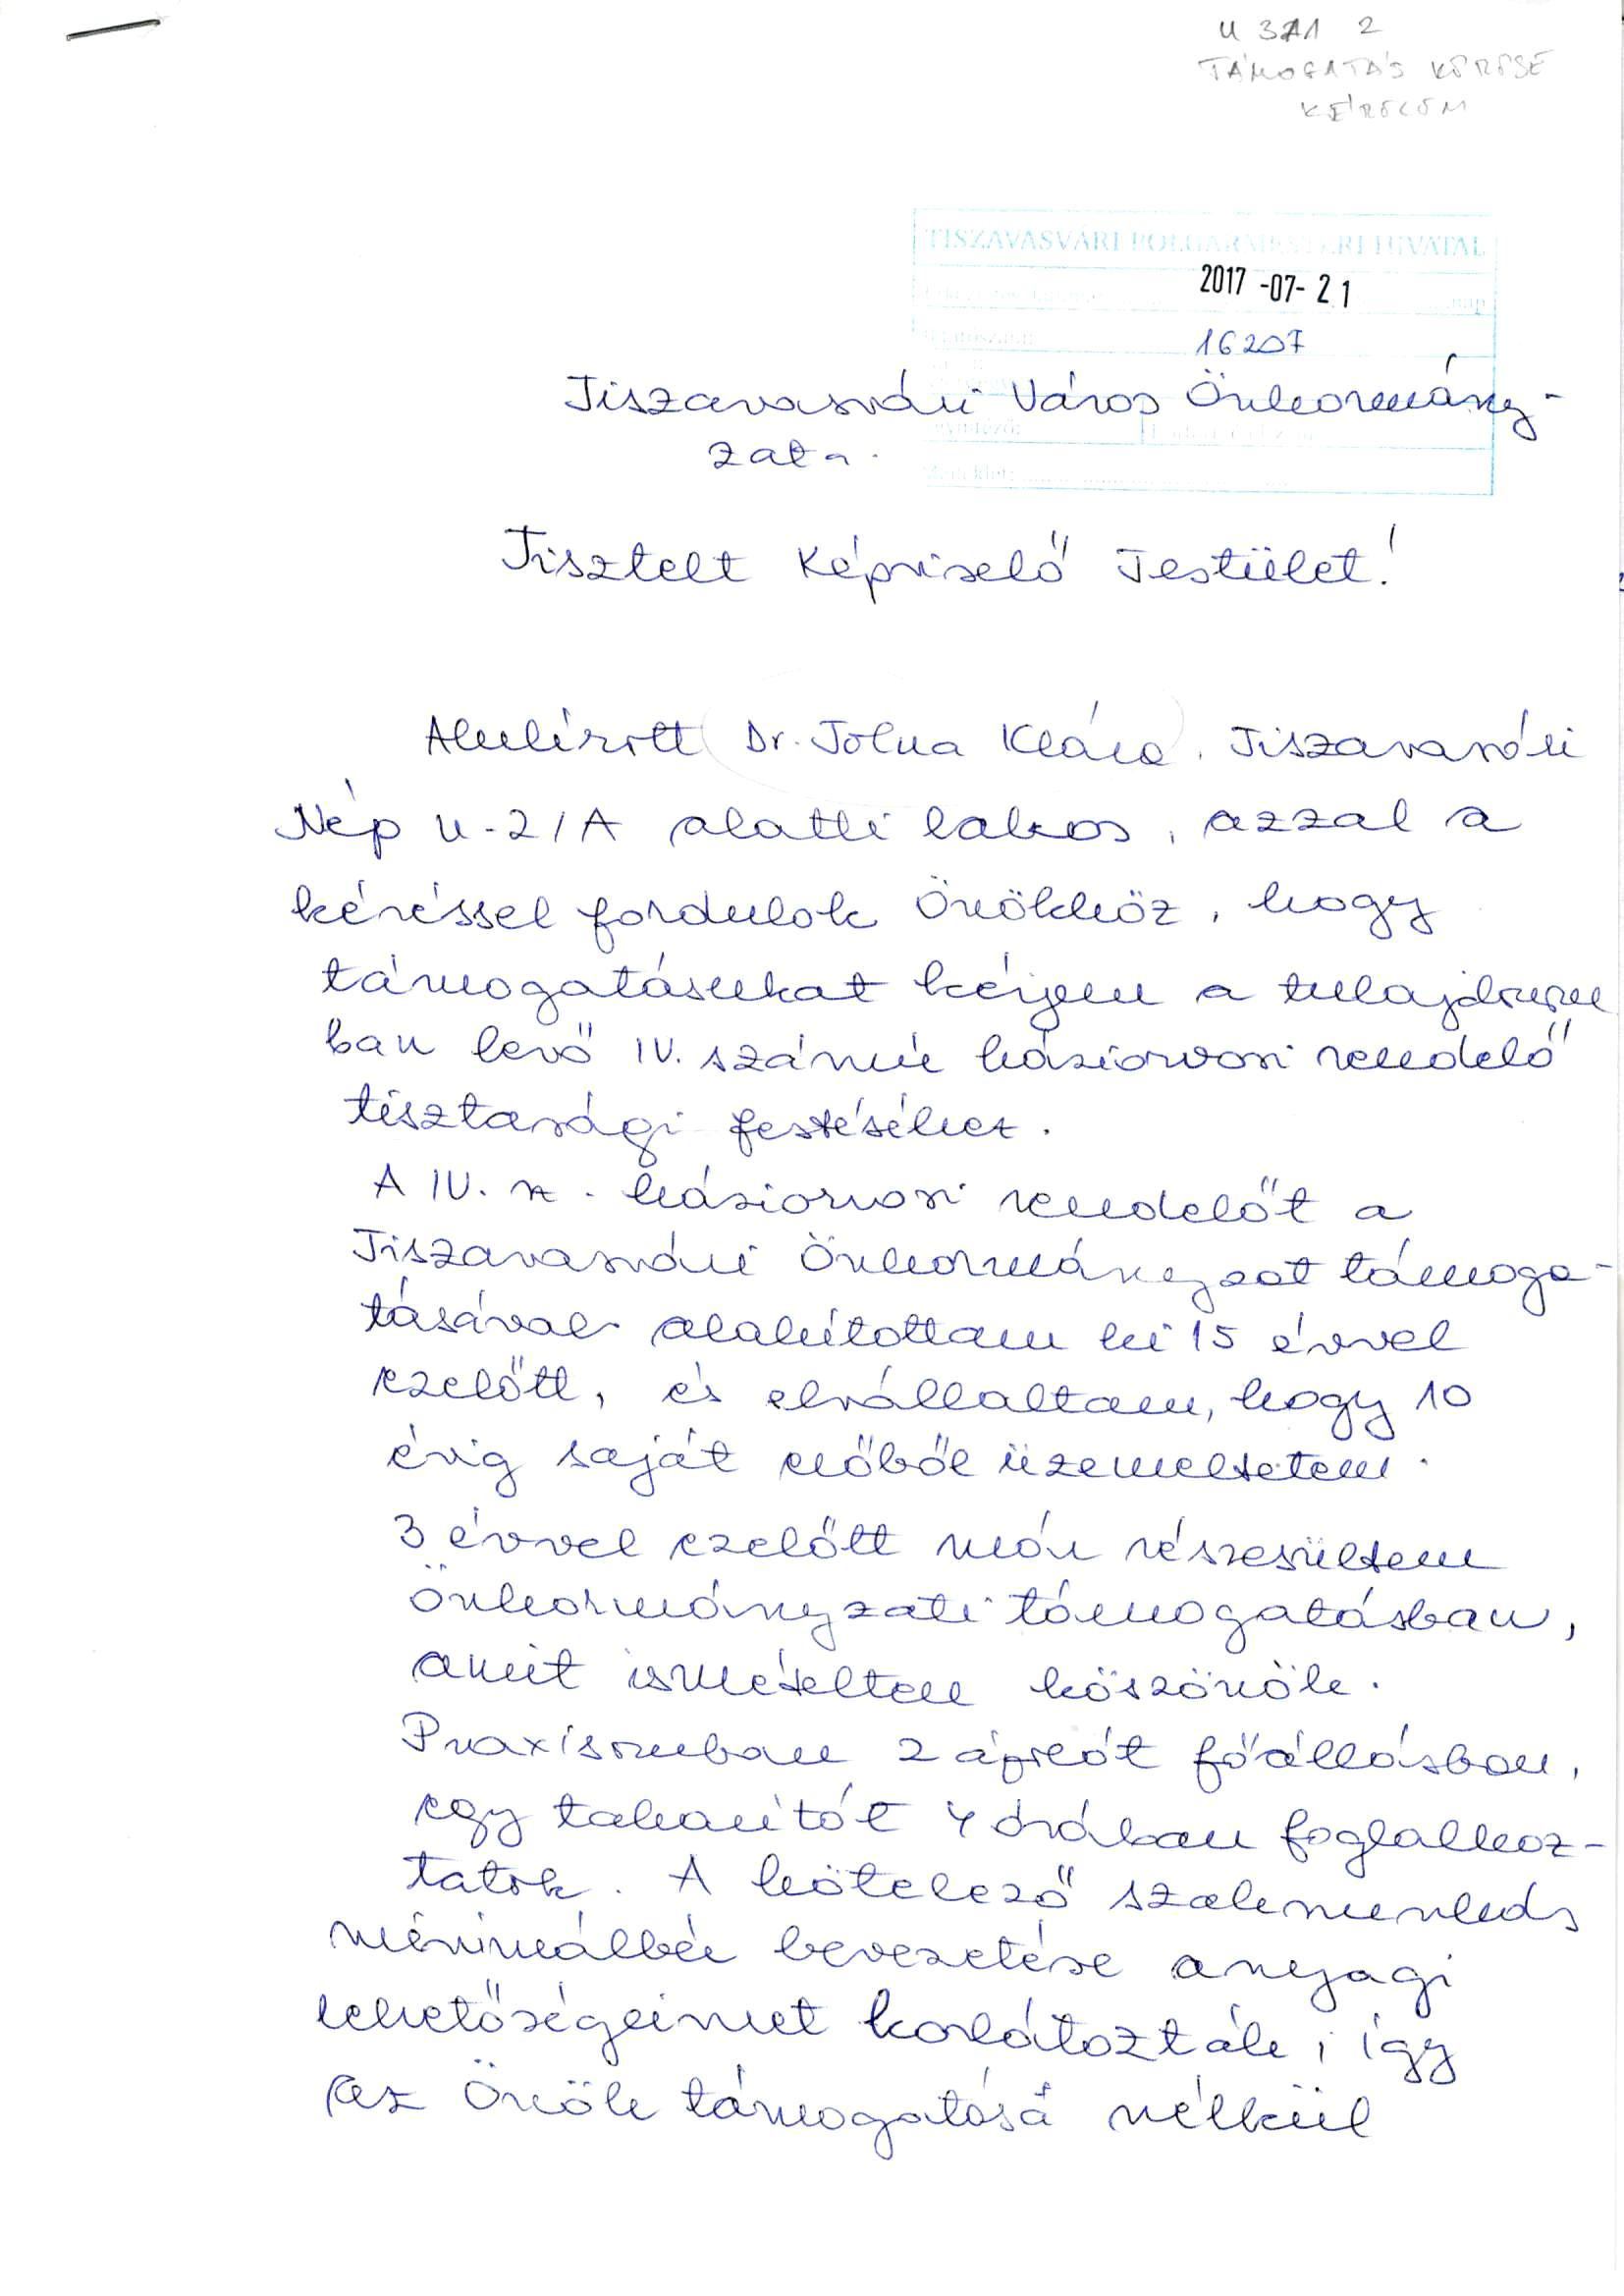 U 3A1 2
TÁMOGATÁS KÉRÉSE
KÉRELEM
TISZAVASVÁRI POLGÁRMESTERI HIVATAL
2017 -07- 21
16207
Tiszavasvári Város Önkormány-
zata
Tisztelt Képviselő Testület!
Alulírott Dr. Tolna Klára, Tiszavasvári
Nép u. 2/A alatti lakos, azzal a
kéréssel fordulok Önökhöz, hogy
támogatásukat kérjem a tulajdonom
ban levő IV. számú háziorvosi rendelő
tisztasági festéséhez.
A IV. sz. háziorvosi rendelőt a
Tiszavasvári Önkormányzat támoga-
tásával alakítottam ki 15 évvel
ezelőtt, és elvállaltam, hogy 10
évig saját erőből üzemeltetem.
3 évvel ezelőtt már részesültem
önkormányzati támogatásban,
amit ismételten köszönök.
Praxisomban 2 ápolót főállásban,
egy takarítót 4 órában foglalkoz-
tatok. A kötelező szakmunkás
minimálbér bevezetése anyagi
lehetőségeimet korlátozták, így
az Önök támogatása nélkül